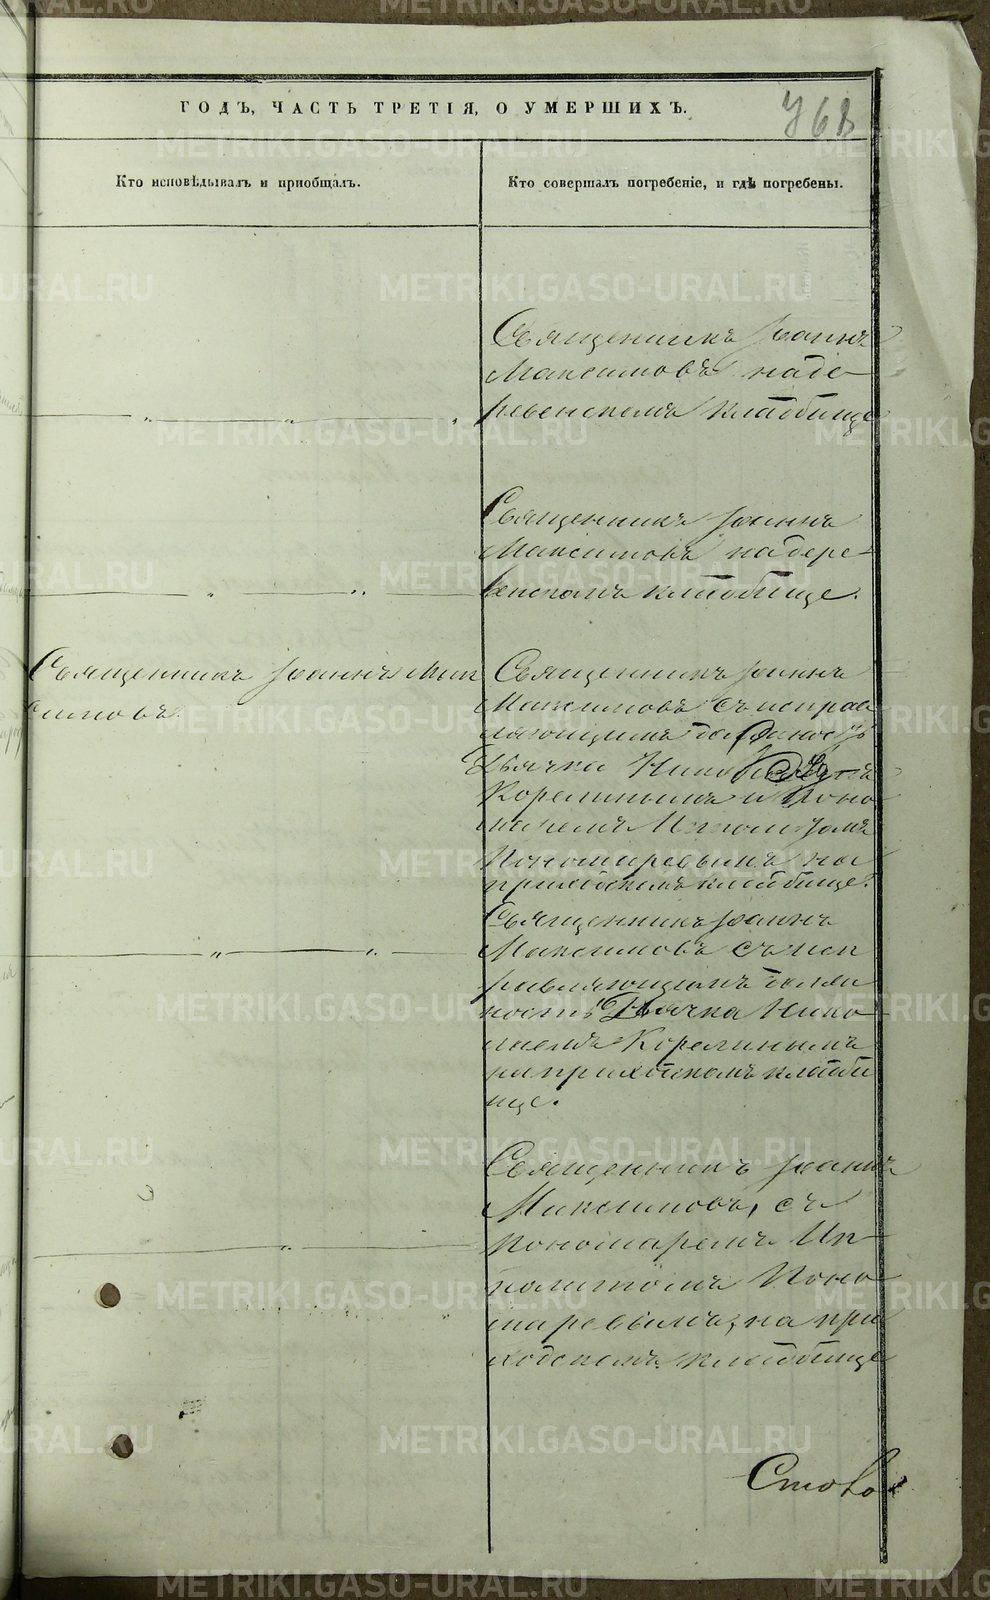 ГОДЪ, ЧАСТЬ ТРЕТІЯ, О УМЕРШИХЪ.
768
Кто исповѣдывалъ и пріобщалъ.
Кто совершалъ погребеніе, и гдѣ погребены.
Священникъ Іоаннъ
Максимовъ на де-
ревенскомъ кладбище
Священникъ Іоаннъ
Максимовъ на дере-
венскомъ кладбище.
Священникъ Іоаннъ Мак
симовъ.
Священникъ Іоаннъ
Максимовъ съ исправ
ляющимъ должность
Дьячка
Корелинымъ и Поно
маремъ Ипполитомъ
Пономаревымъ на
приходскомъ кладбище.
Священникъ Іоаннъ
Максимовъ съ исп
равляющимъ долж
ность Дьячка Нико
лаемъ Корелинымъ
на приходскомъ кладби
ще.
Священникъ Іоаннъ
Максимовъ, съ
Пономаремъ Ип-
политомъ Поно
маревымъ, на при
ходскомъ кладбище
METRIKI.GASO-URAL.RU